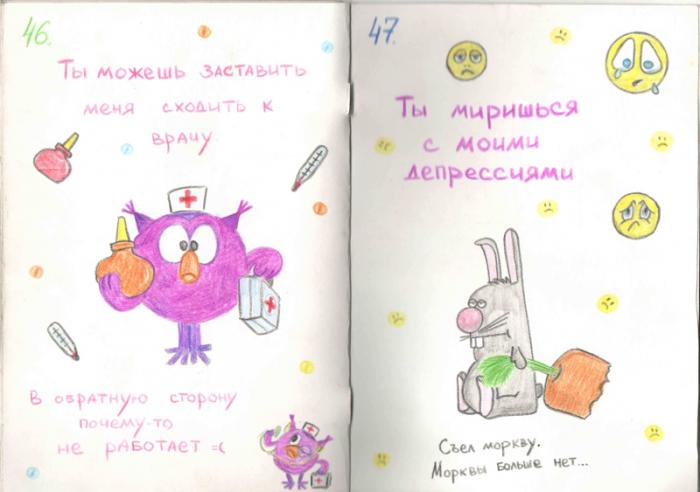 46.
Ты можешь заставить
меня сходить к
врачу.
В обратную сторону
почему-то
не работает =(
47.
Ты миришься
с моими
депрессиями
Съел моркву.
Морквы больше нет...